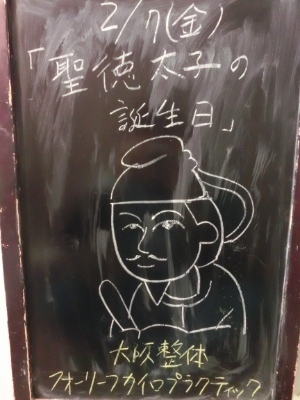 2/7(金)
「聖徳太子の
誕生日」
大阪整体
フォーリーフカイロプラクティック